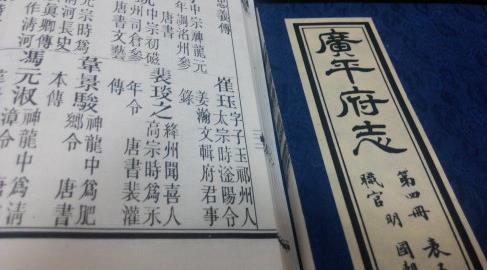 廣平府志
第四冊
職官 明
忠義傳
中宗神龍元
唐書
崔珏 字子玉祁州人
太宗時滏陽令
姜瀚文輯府君事
錄
中宗初磁
州司倉參
唐書文藝
傳
裴玫之 絳州聞喜人
高宗時為永
年令 唐書裴漼
傳
元宗時為
清河長史
韋景駿 神龍中為肥
鄉令 唐書
本傳
馮元淑 神龍中為清
漳令